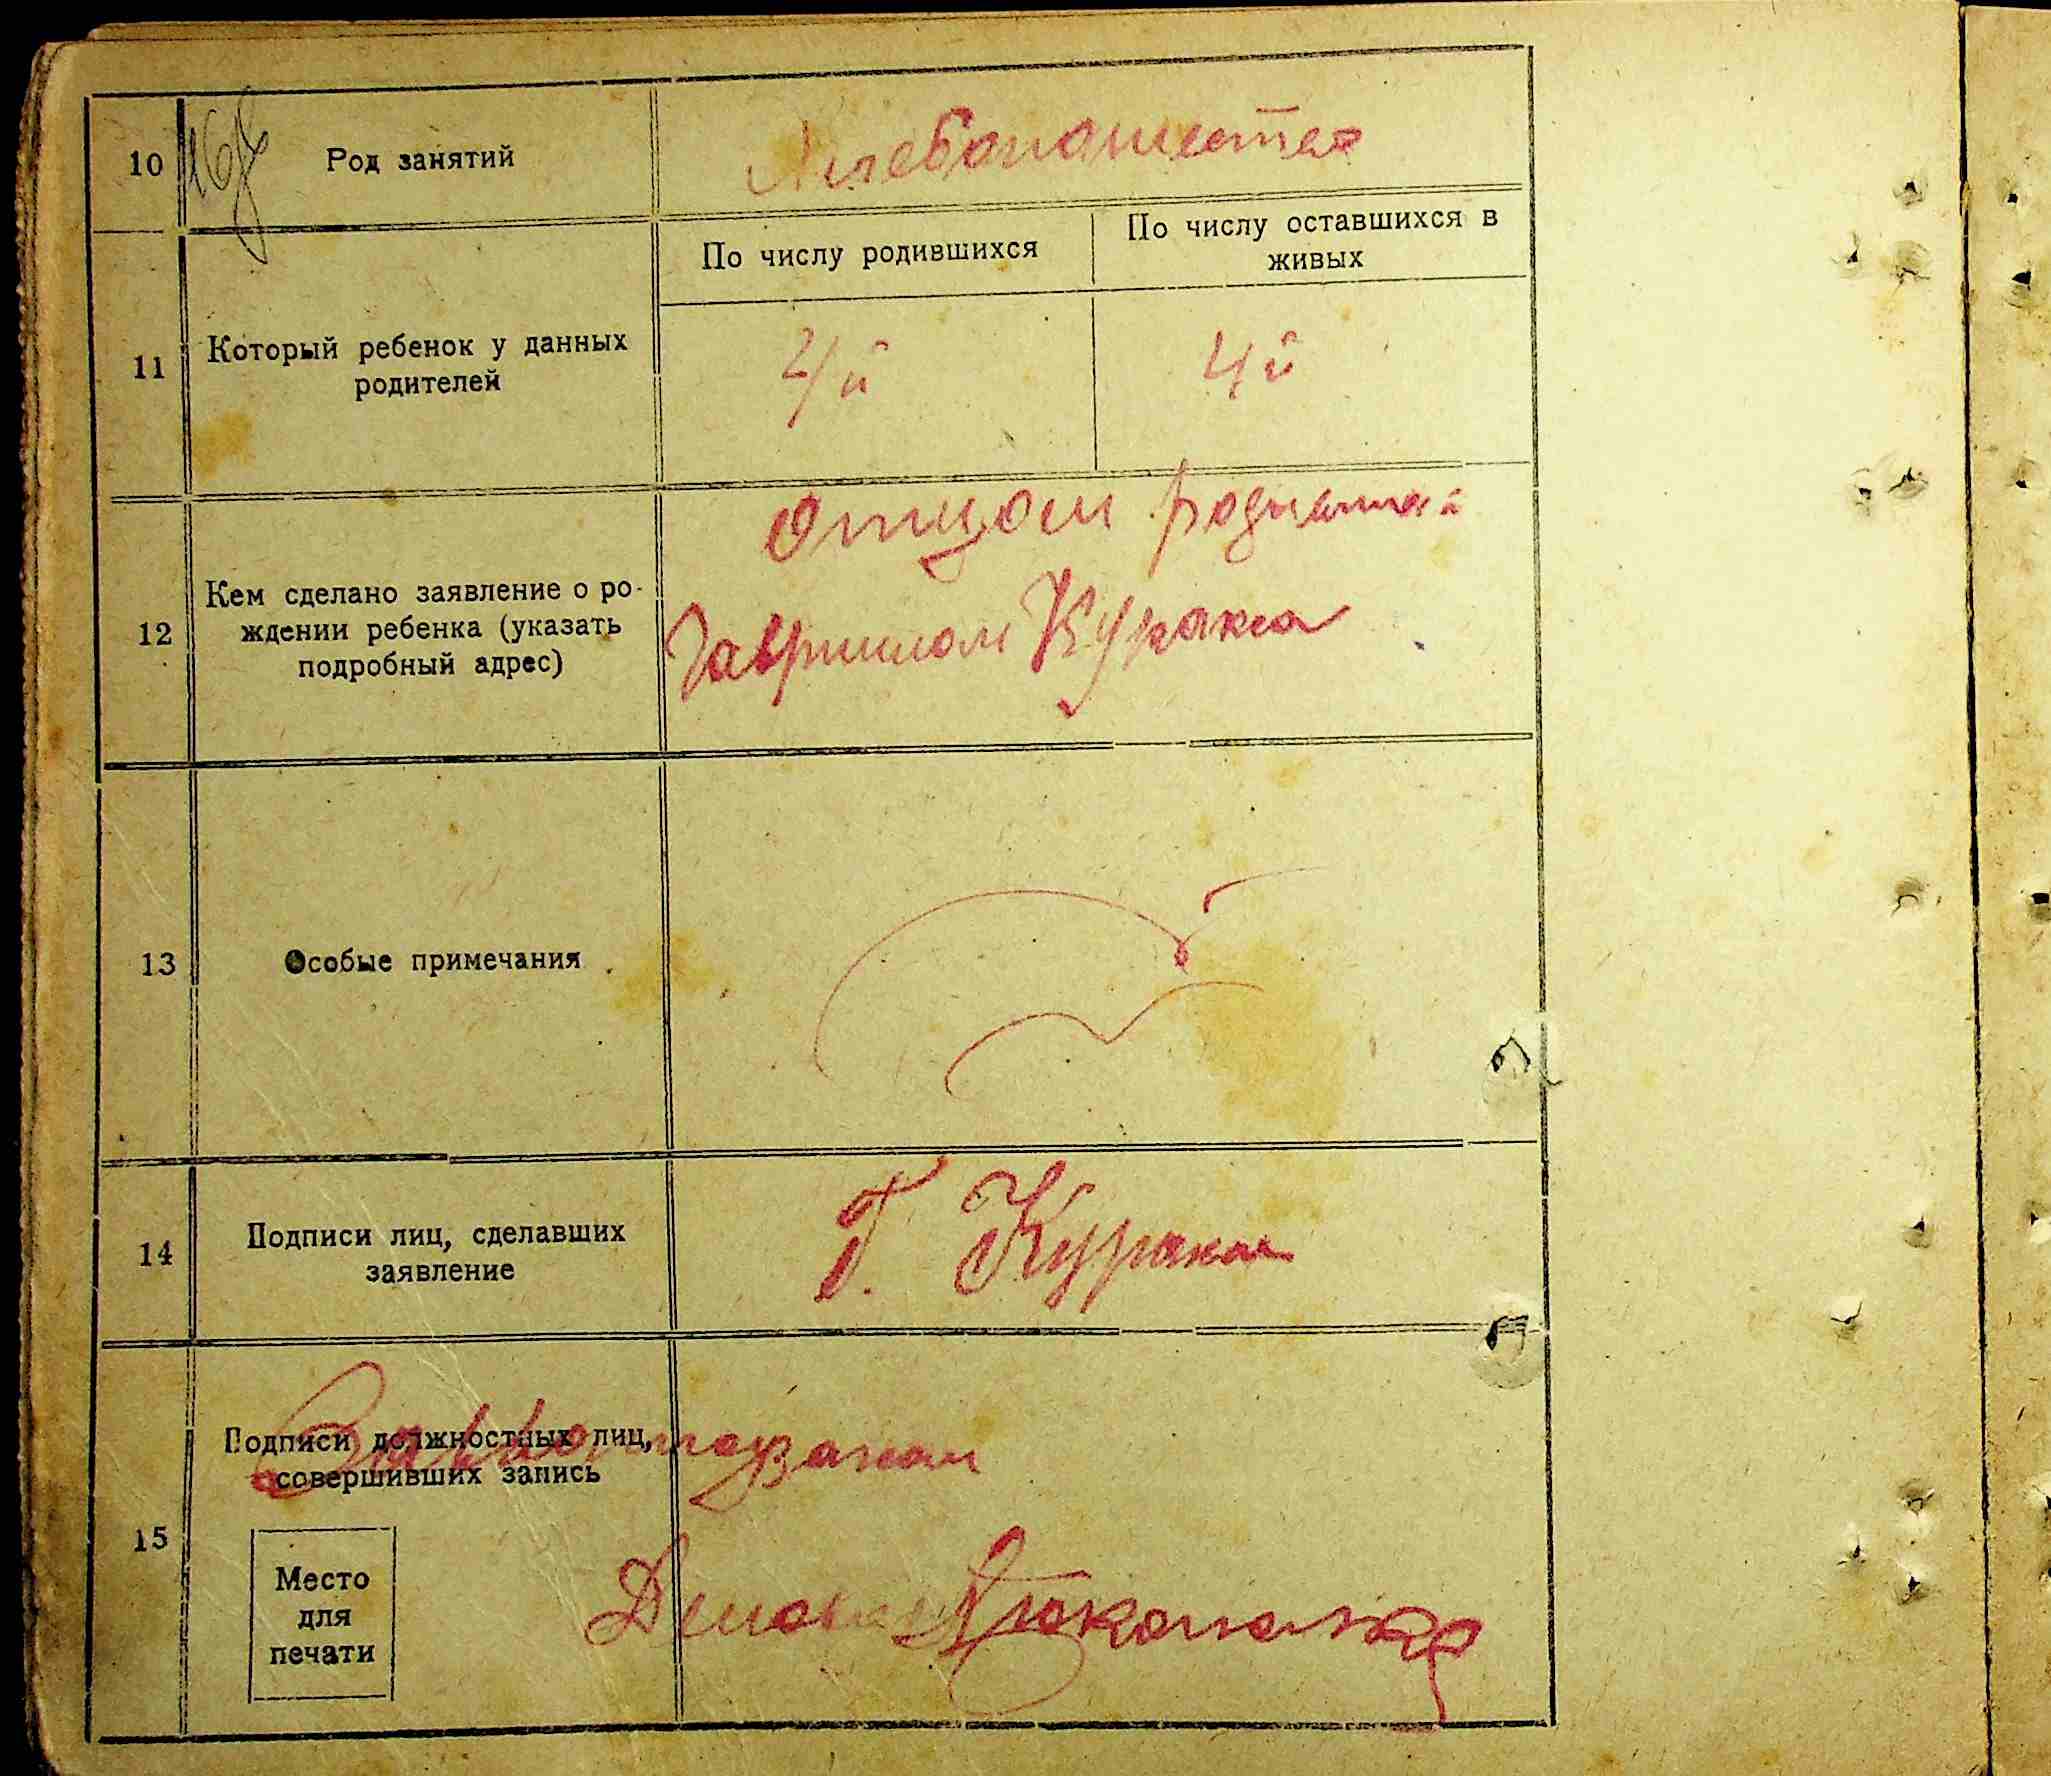 167
10 Род занятий Хлебопашество
11 Который ребенок у данных
родителей
По числу родившихся
По числу оставшихся в
живых
4й 4й
12 Кем сделано заявление о ро-
ждении ребенка (указать
подробный адрес)
Отцом
Гавриилом Курака
13 Особые примечания
14 Подписи лиц, сделавших
заявление
Г. Курака
15 Подписи должностных лиц,
совершивших запись
Место
для
печати